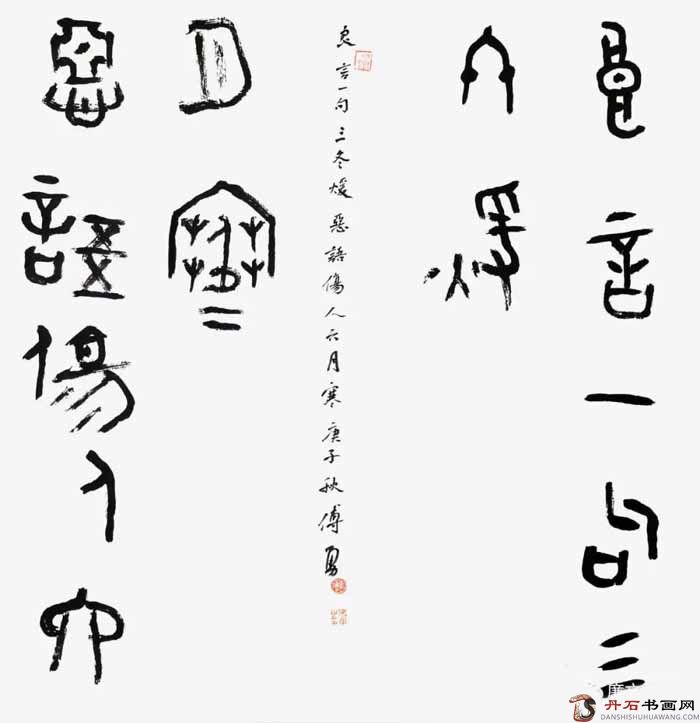 良言一句三
冬煖
良言一句三冬煖惡語傷人六月寒庚子秋傅勇
惡語傷人六
月寒
丹石书画网
DANSHISHUHUAWANG.COM